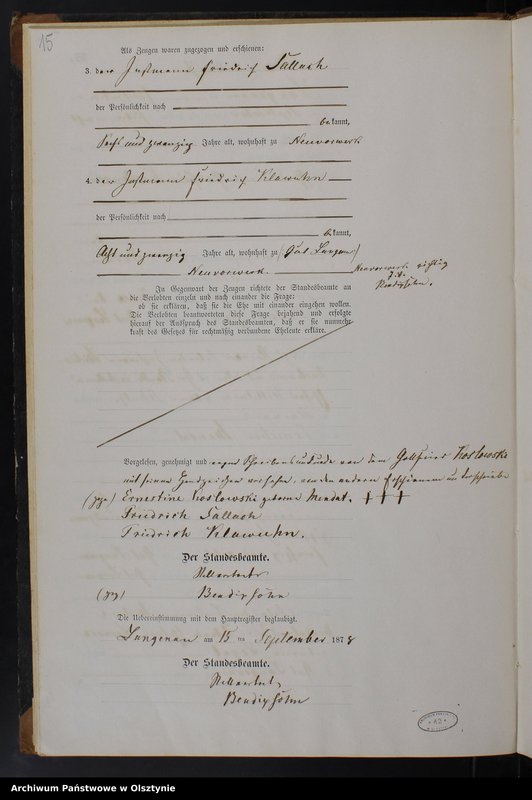 15
Als Zeugen waren zugezogen und erschienen:
3. der Instmann Friedrich Sallach
der Persönlichkeit nach
bekannt,
Sechs und zwanzig Jahre alt, wohnhaft zu Neuvorwerk
4. der Instmann Friedrich Klawuhn
der Persönlichkeit nach
bekannt,
Acht und zwanzig Jahre alt, wohnhaft zu (Gut Langenau)
Neuvorwerk.
Neuvorwerk richtig
Bendixsohn.
In Gegenwart der Zeugen richtete der Standesbeamte an
die Verlobten einzeln und nach einander die Frage:
ob sie erklären, daß sie die Ehe mit einander eingehen wollen.
Die Verlobten beantworteten diese Frage bejahend und erfolgte
hierauf der Ausspruch des Standesbeamten, daß er sie nunmehr
kraft des Gesetzes für rechtmäßig verbundene Eheleute erkläre.
Vorgelesen, genehmigt und wegen Schreibensunkunde von dem Gottfried Koslowski
mit seinem Handzeichen versehen, von den anderen Erschienenen unterschrieben
(gez) Ernestine Koslowski geborne Mendat. +++
Friedrich Sallach
Fridrich Klawuhn.
Der Standesbeamte.
Stellvertreter
(gez) Bendixsohn
Die Uebereinstimmung mit dem Hauptregister beglaubigt.
Langenau am 15 ten September 1878
Der Standesbeamte.
Stellvertret.
Bendixsohn
Archiwum Państwowe w Olsztynie